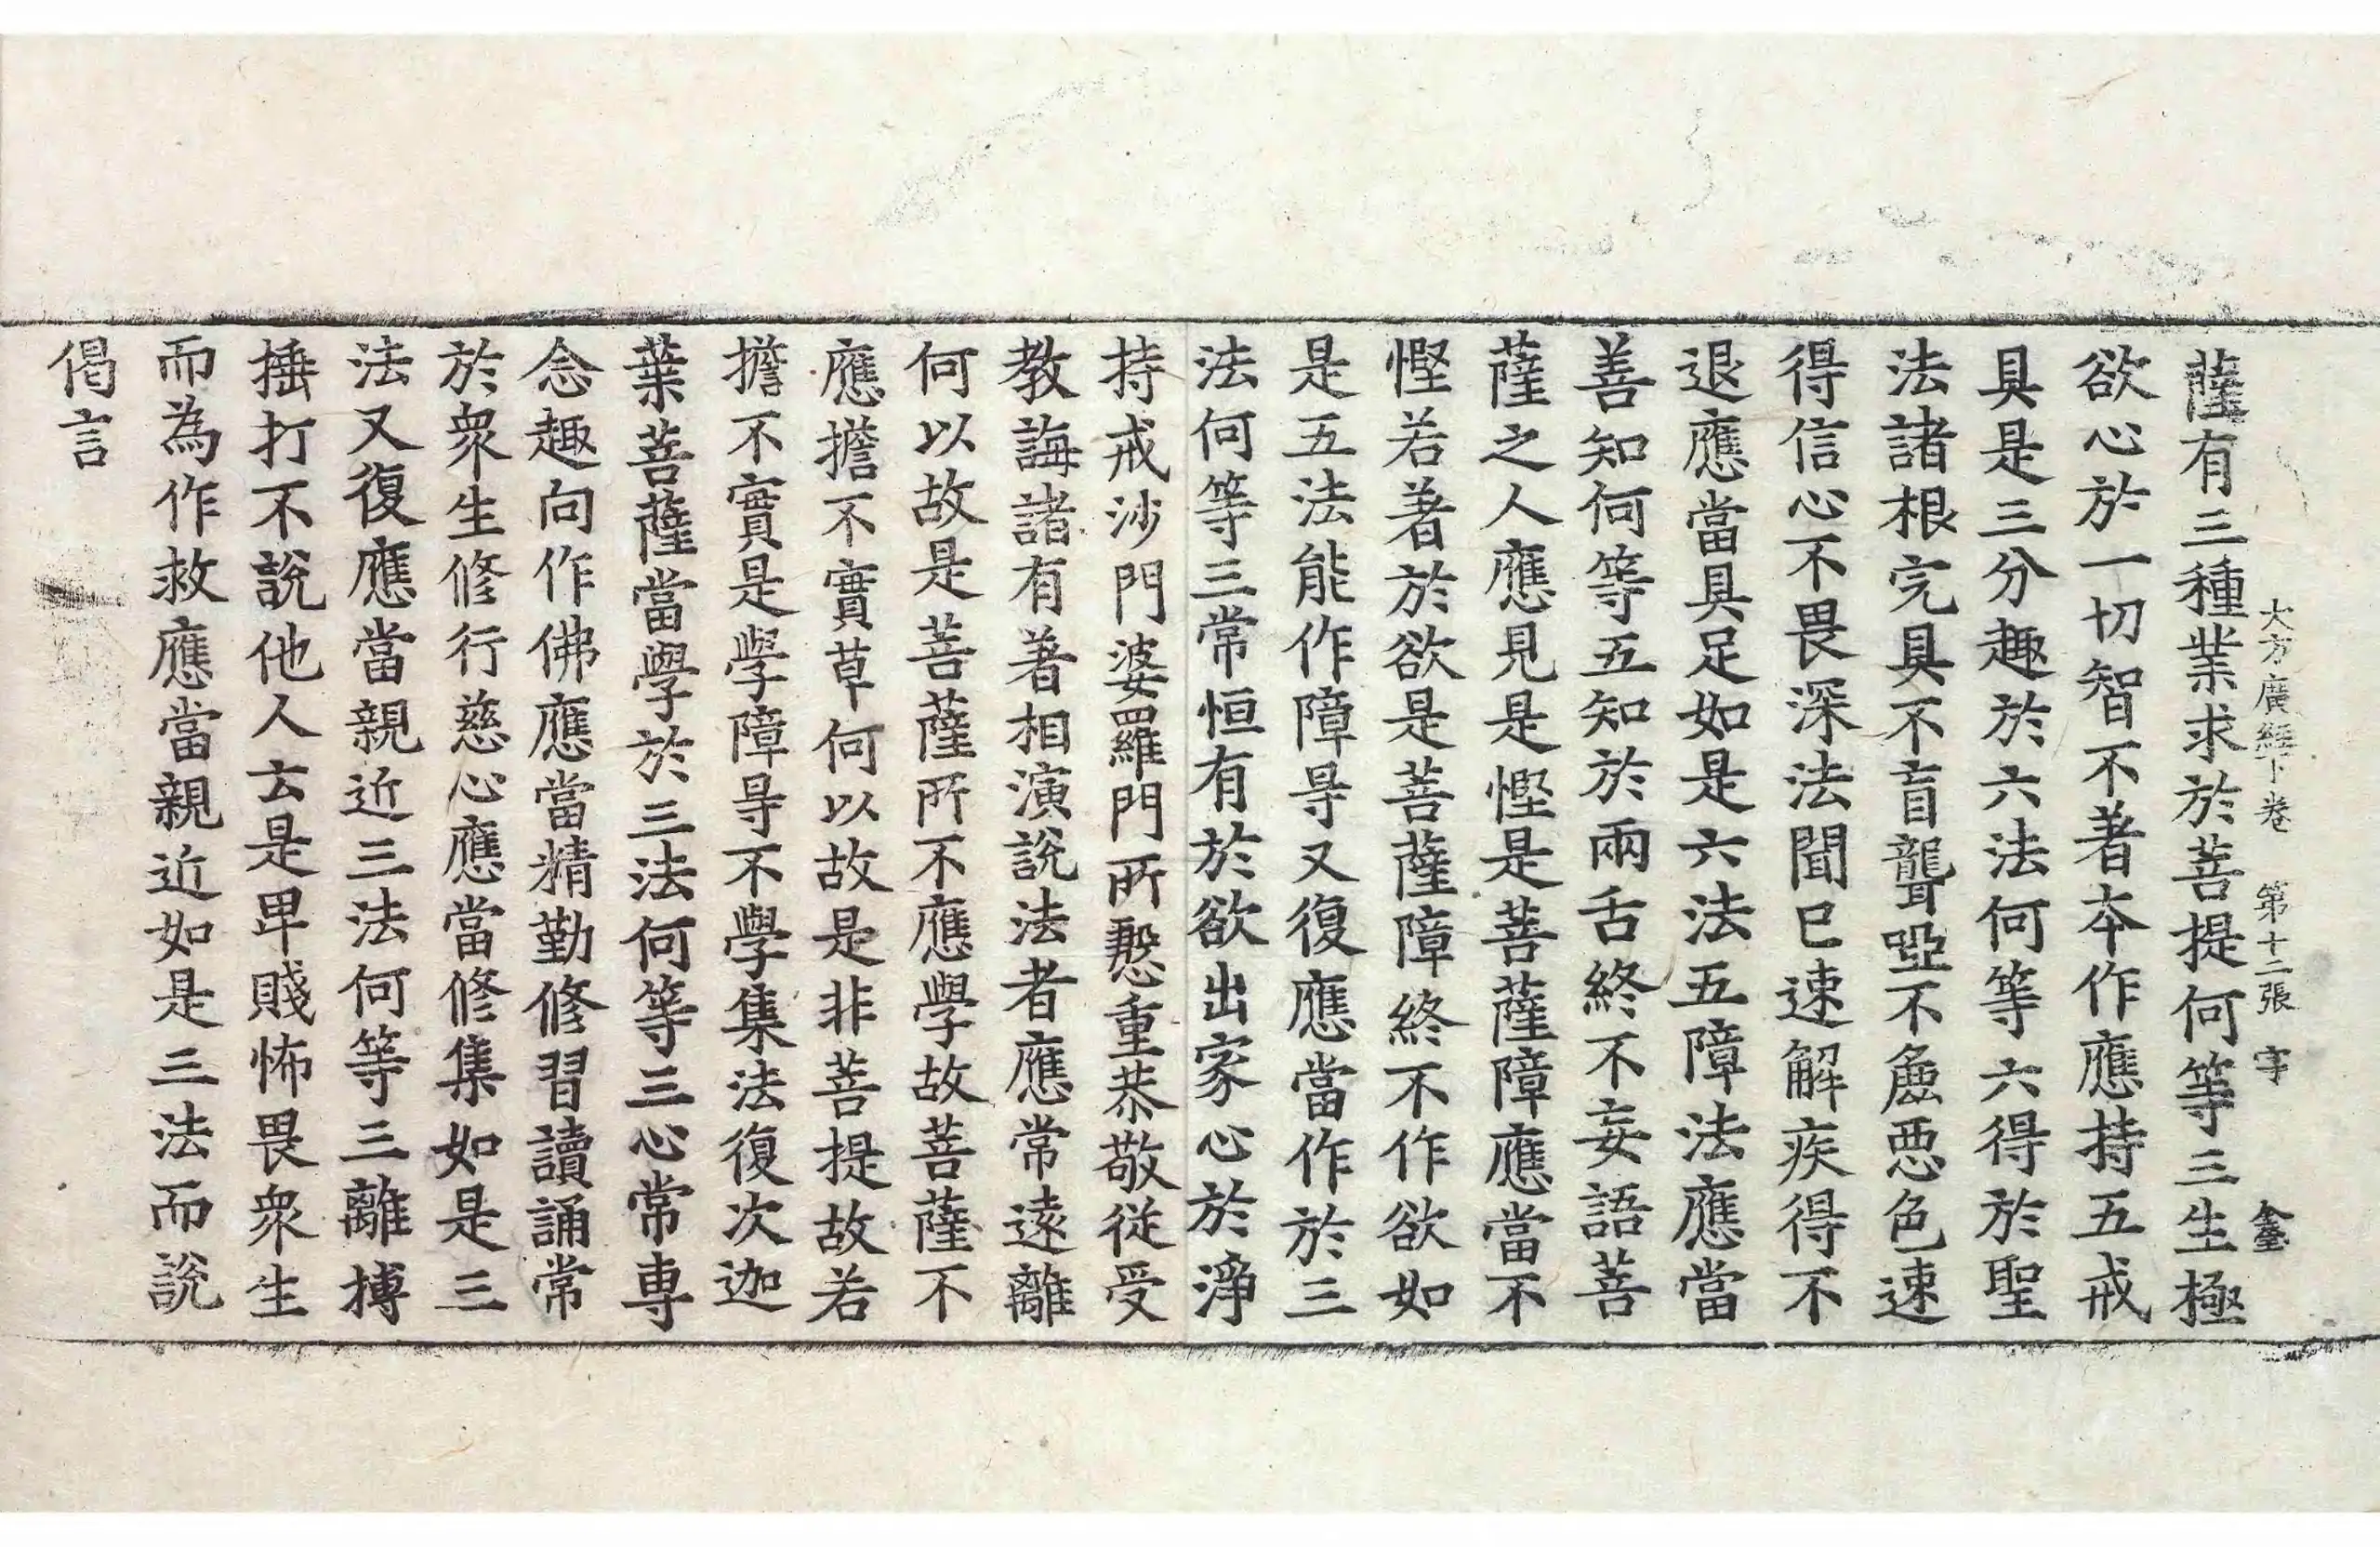 大方廣經下卷 第十二張 字
薩有三種業求於菩提何等三生極
欲心於一切智不著夲作應持五戒
具是三分趣於六法何等六得於聖
法諸根完具不盲聾瘂不麁惡色速
得信心不畏深法聞已速解疾得不
退應當具足如是六法五障法應當
善知何等五知於兩舌終不妄語菩
薩之人應見是慳是菩薩障應當不
慳若著於欲是菩薩障終不作欲如
是五法能作障㝵又復應當作於三
法何等三常恒有於欲出家心於淨
持戒沙門婆羅門所慇重恭敬從受
教誨諸有著相演說法者應常遠離
何以故是菩薩所不應學故菩薩不
應擔不實草何以故是非菩提故若
擔不實是學障㝵不學集法復次迦
葉菩薩當學於三法何等三心常專
念趣向作佛應當精勤修習讀誦常
於衆生修行慈心應當修集如是三
法又復應當親近三法何等三離搏
捶打不說他人去是卑賤怖畏衆生
而為作救應當親近如是三法而說
偈言